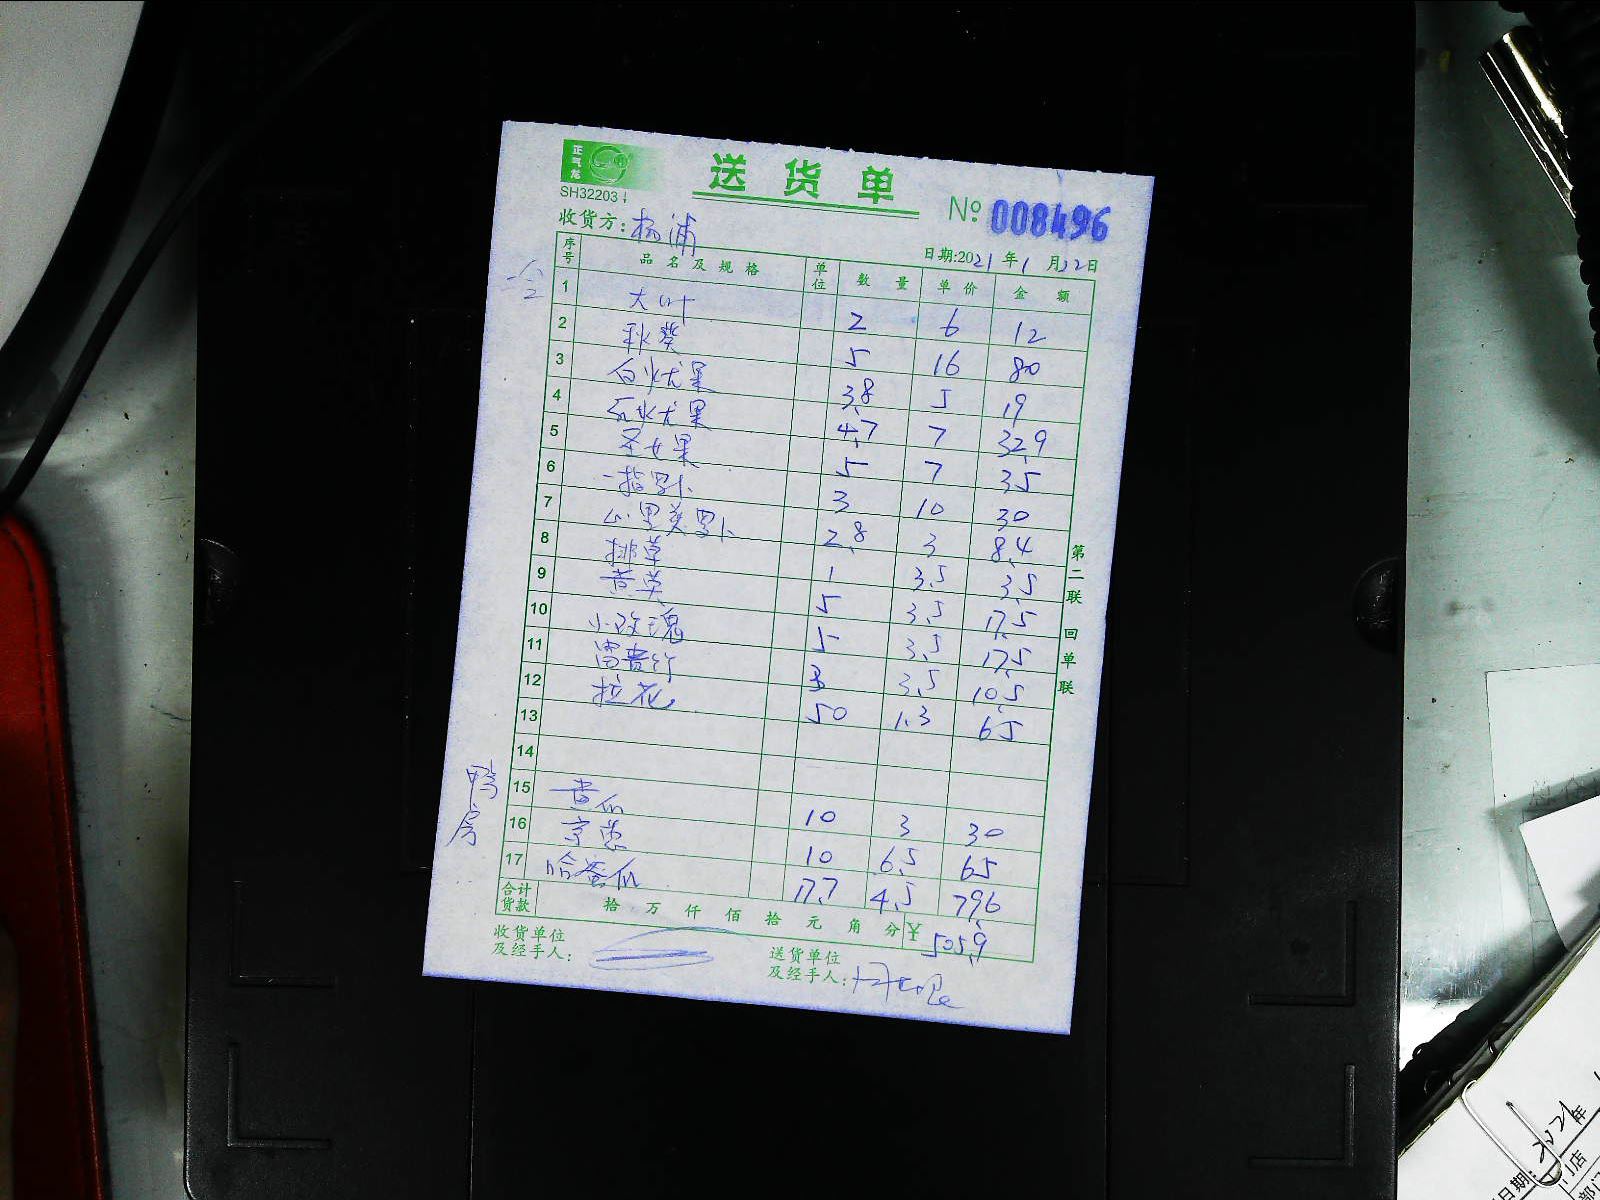 正气龙
送货单
SH32203
№ 008496
收货方: 杨浦
日期:2021年1月22日
序号 品名及规格 单位 数量 单价 金额
1 大叶 2 6 12
2 秋葵 5 16 80
3 白火龙果 3.8 5 19
4 红火龙果 4.7 7 32.9
5 圣女果 5 7 35
6 一指罗卜 3 10 30
7 心里美罗卜 2.8 3 8.4
8 排草 1 3.5 3.5
9 黄英 5 3.5 17.5
10 小玫瑰 5 3.5 17.5
11 富贵竹 3 3.5 10.5
12 拉花 50 1.3 65
13
14
鸭房
15 黄瓜 10 3 30
16 京葱 10 6.5 65
17 哈蜜瓜 17.7 4.5 79.6
合计货款 拾万仟佰拾元角分 ¥ 505.9
收货单位及经手人:
送货单位及经手人:
第二联 回单联
日期: 2021年
店
部门